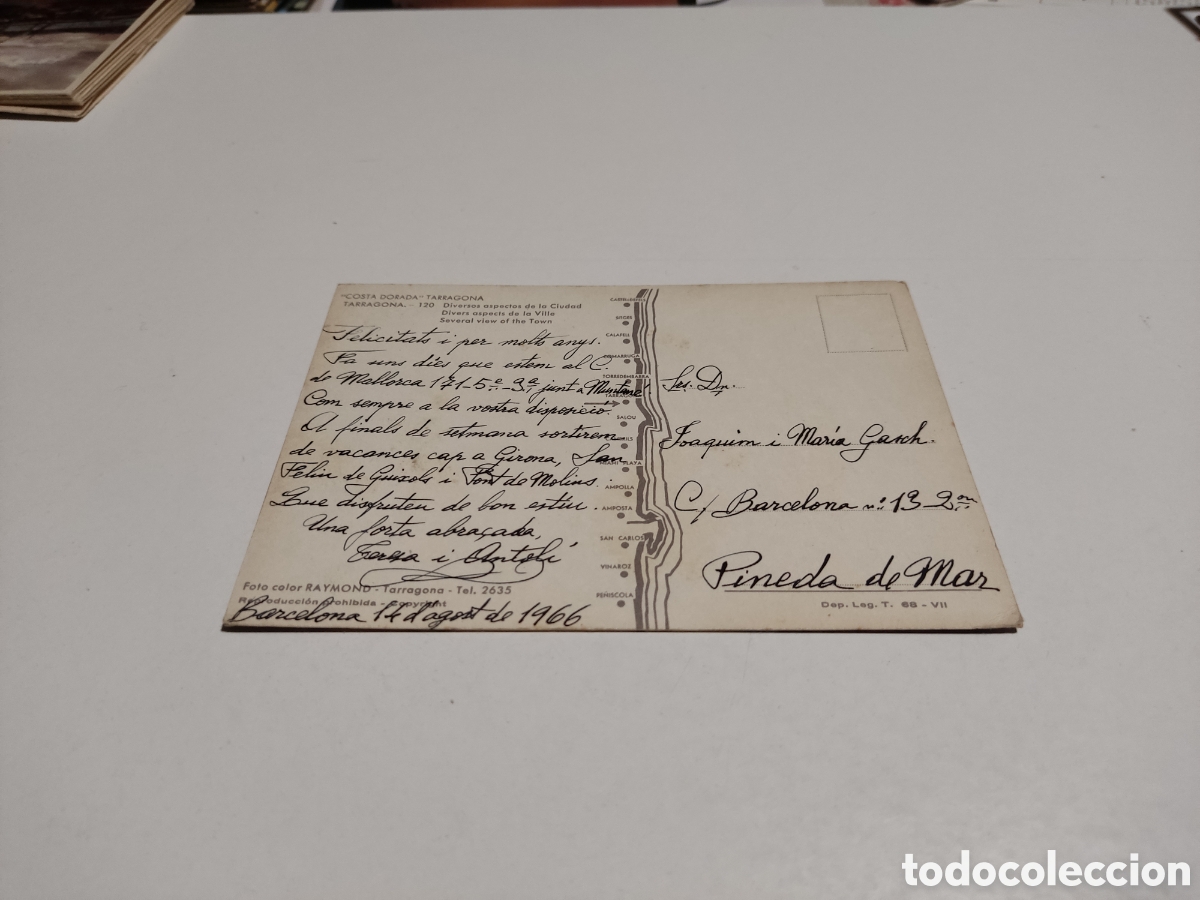 "COSTA DORADA" TARRAGONA
TARRAGONA. - 120 Diversos aspectos de la Ciudad
Divers aspects de la Ville
Several view of the Town
Felicitats i per molts anys.
Fa uns dies que estem al C.
de Mallorca 171-5º 3ª junt a Muntané
Com sempre a la vostra disposició.
A finals de setmana sortirem
de vacances cap a Girona, San
Feliu de Guixols i Pont de Molins.
Que disfruteu de bon estiu.
Una forta abraçada,
Teresa i Antolí
Foto color RAYMOND - Tarragona - Tel. 2635
Reproducción Prohibida - Copyright
Barcelona 14 d'agost de 1966
CASTELLDEFELS
SITGES
CALAFELL
COMARRUGA
TORREDEMBARRA
TARRAGONA
SALOU
MIAMI PLAYA
AMPOLLA
AMPOSTA
SAN CARLOS
VINAROZ
PEÑISCOLA
Srs. Dn.
Joaquim i María Gasch.
C/ Barcelona nº 19-2on
Pineda de Mar
Dep. Leg. T. 68 - VII
todocoleccion